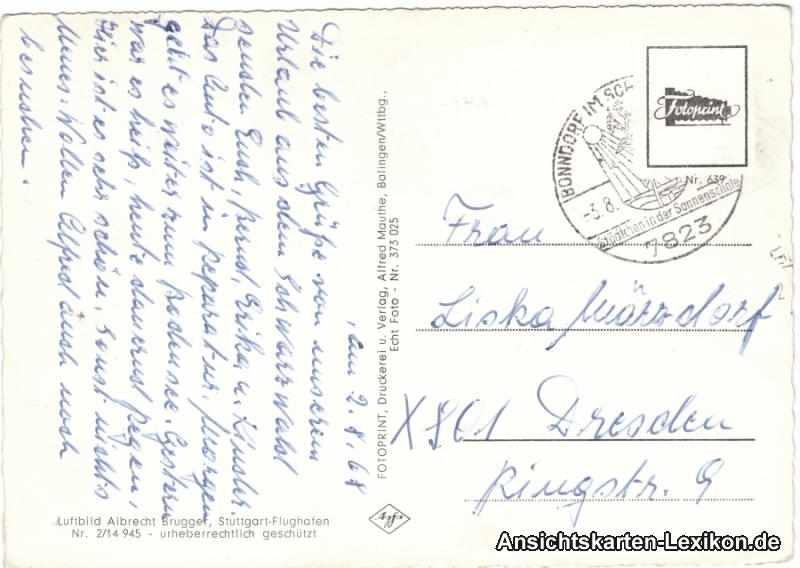 , am 2.8.64
Die besten Grüße von unserem
Urlaub aus dem Schwarzwald
senden Euch, Bernd, Erika, u. Kinder.
Das Auto ist in Reparatur. Morgen
geht es weiter zum Bodensee. Gestern
war es heiß, heute dauernd Regen.
Hier ist es sehr schön, sonst nichts
Neues. Wollen Alfred auch noch
besuchen.
FOTOPRINT, Druckerei u. Verlag, Alfred Mauthe, Balingen/Wttbg.,
Echt Foto - Nr. 373 025
Fotoprint
Nr. 639
BONNDORF IM SCH
-3.8.
Städtchen in der Sonnenschale
7823
Frau
Liska Märzdorf
X801 Dresden
Ringstr. 9
Luftbild Albrecht Brugger, Stuttgart-Flughafen
Nr. 2/14 945 - urheberrechtlich geschützt
Agfa
Ansichtskarten-Lexikon.de